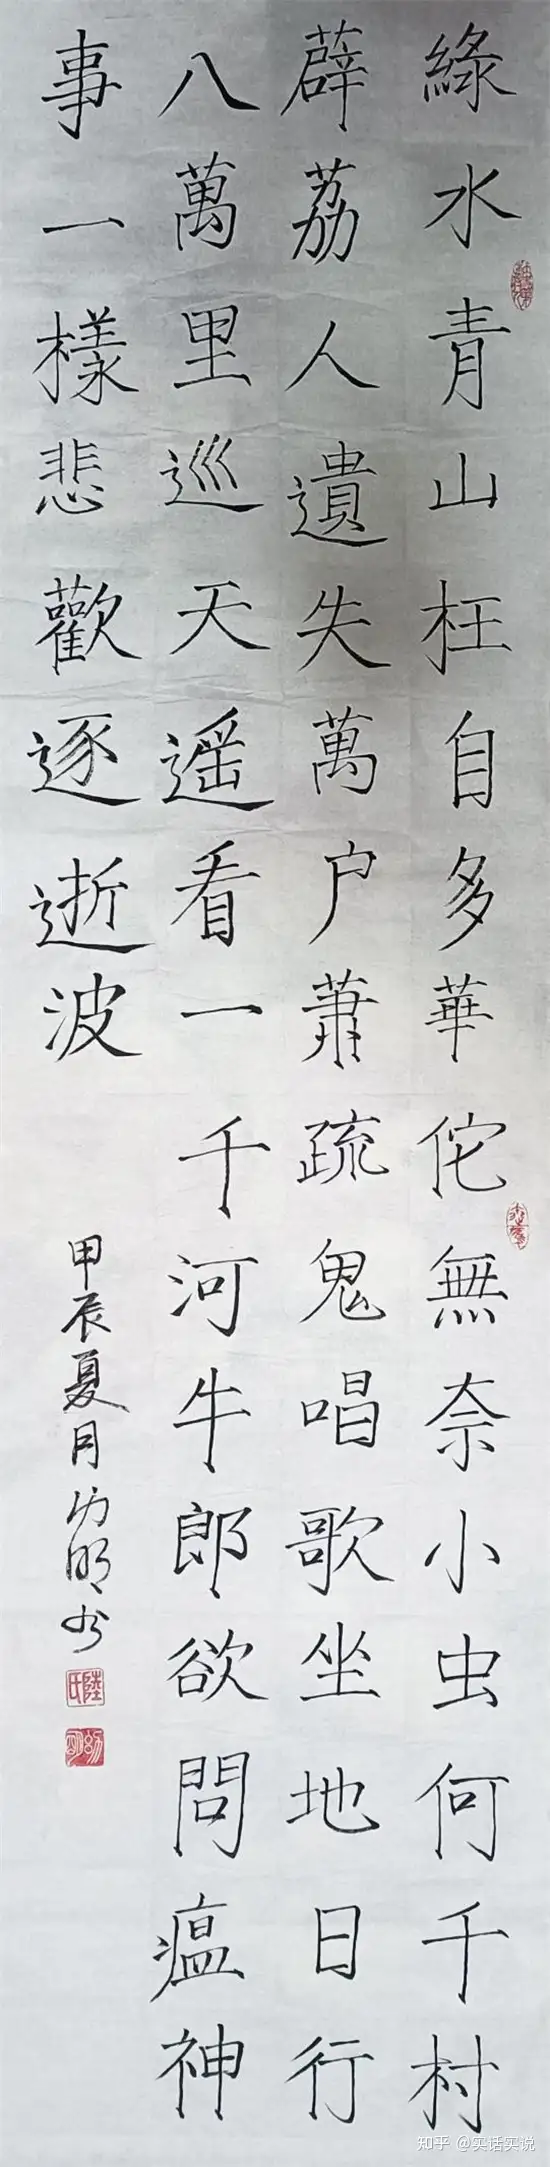 緑水青山枉自多華佗無奈小虫何千村
薜荔人遺失萬户蕭疏鬼唱歌坐地日行
八萬里巡天遥看一千河牛郎欲問瘟神
事一樣悲歡逐逝波
甲辰夏月
知乎 @实话实说